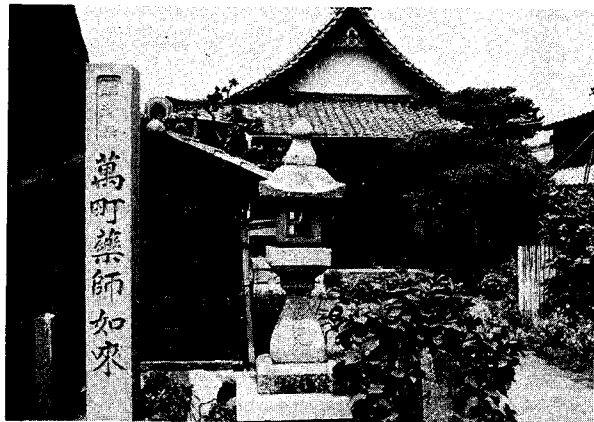 萬町藥師如來